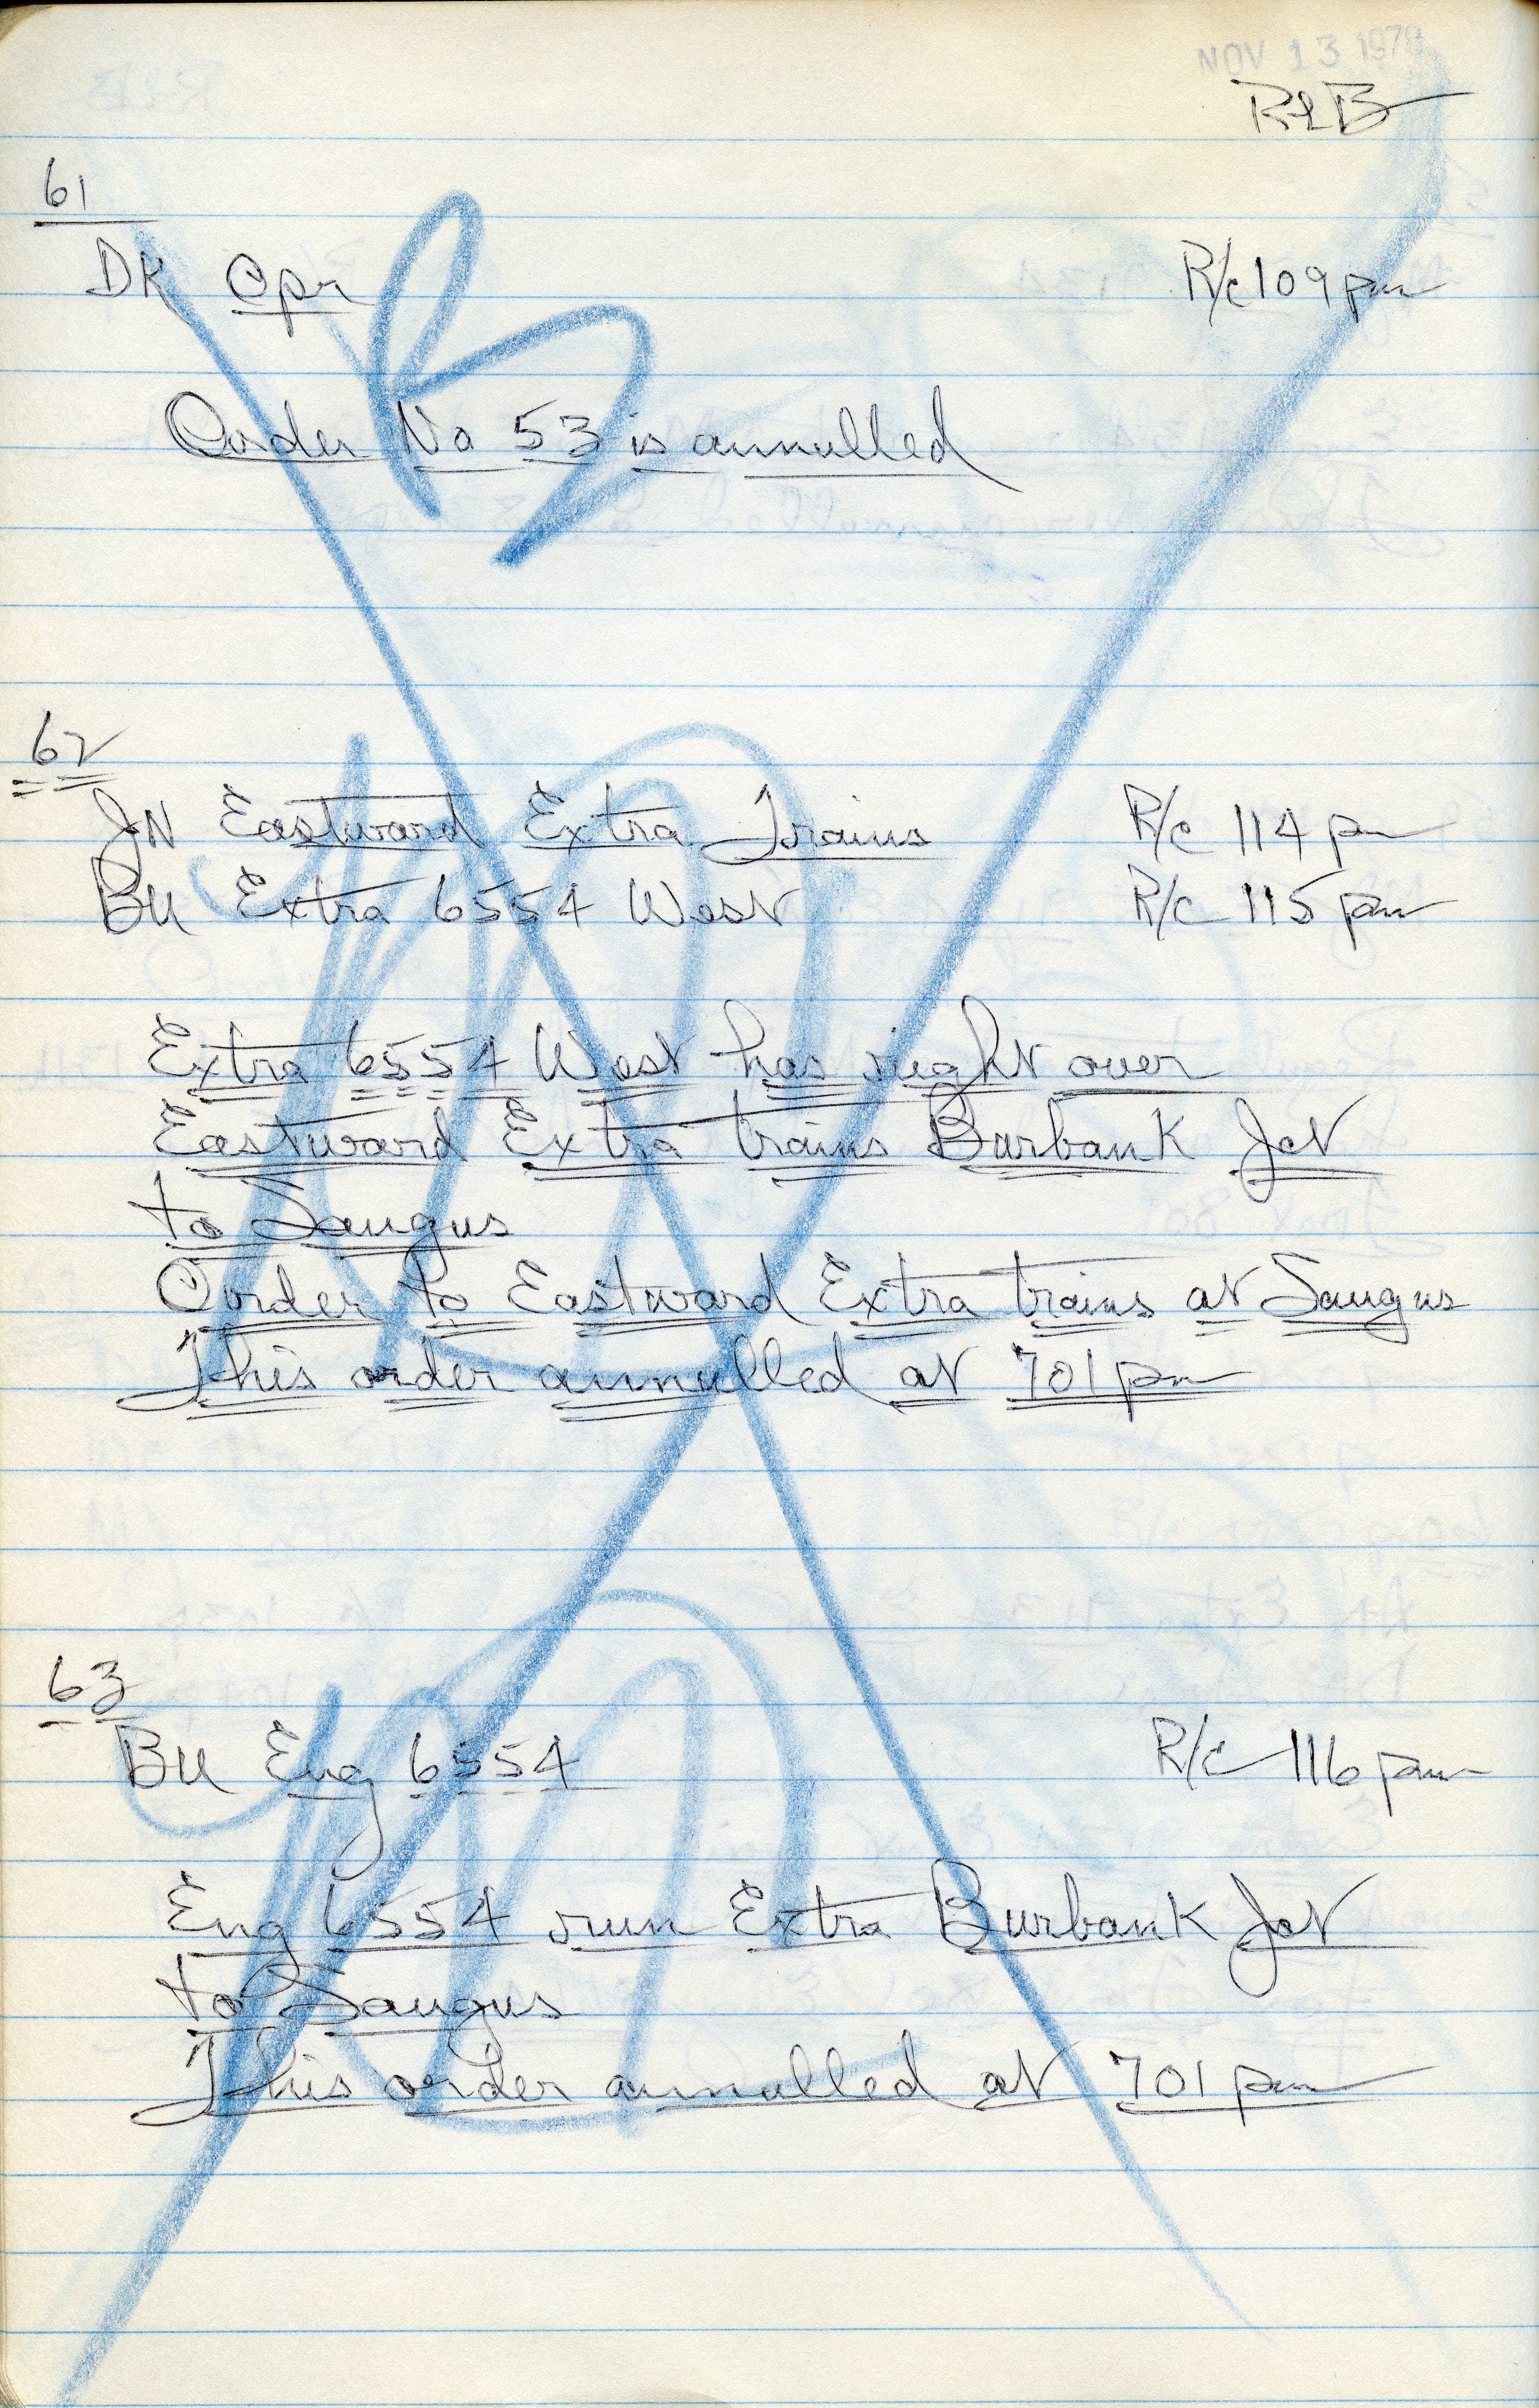 NOV 13 1978
RLB
61
DK Opr R/c 109 pm
Order No 53 is annulled
62
JN Eastward Extra Trains R/c 114 pm
BU Extra 6554 West R/c 115 pm
Extra 6554 West has right over
Eastward Extra trains Burbank Jct
to Saugus
Order to Eastward Extra trains at Saugus
This order annulled at 701 pm
63
BU Eng 6554 R/c 116 pm
Eng 6554 run Extra Burbank Jct
to Saugus
This order annulled at 701 pm